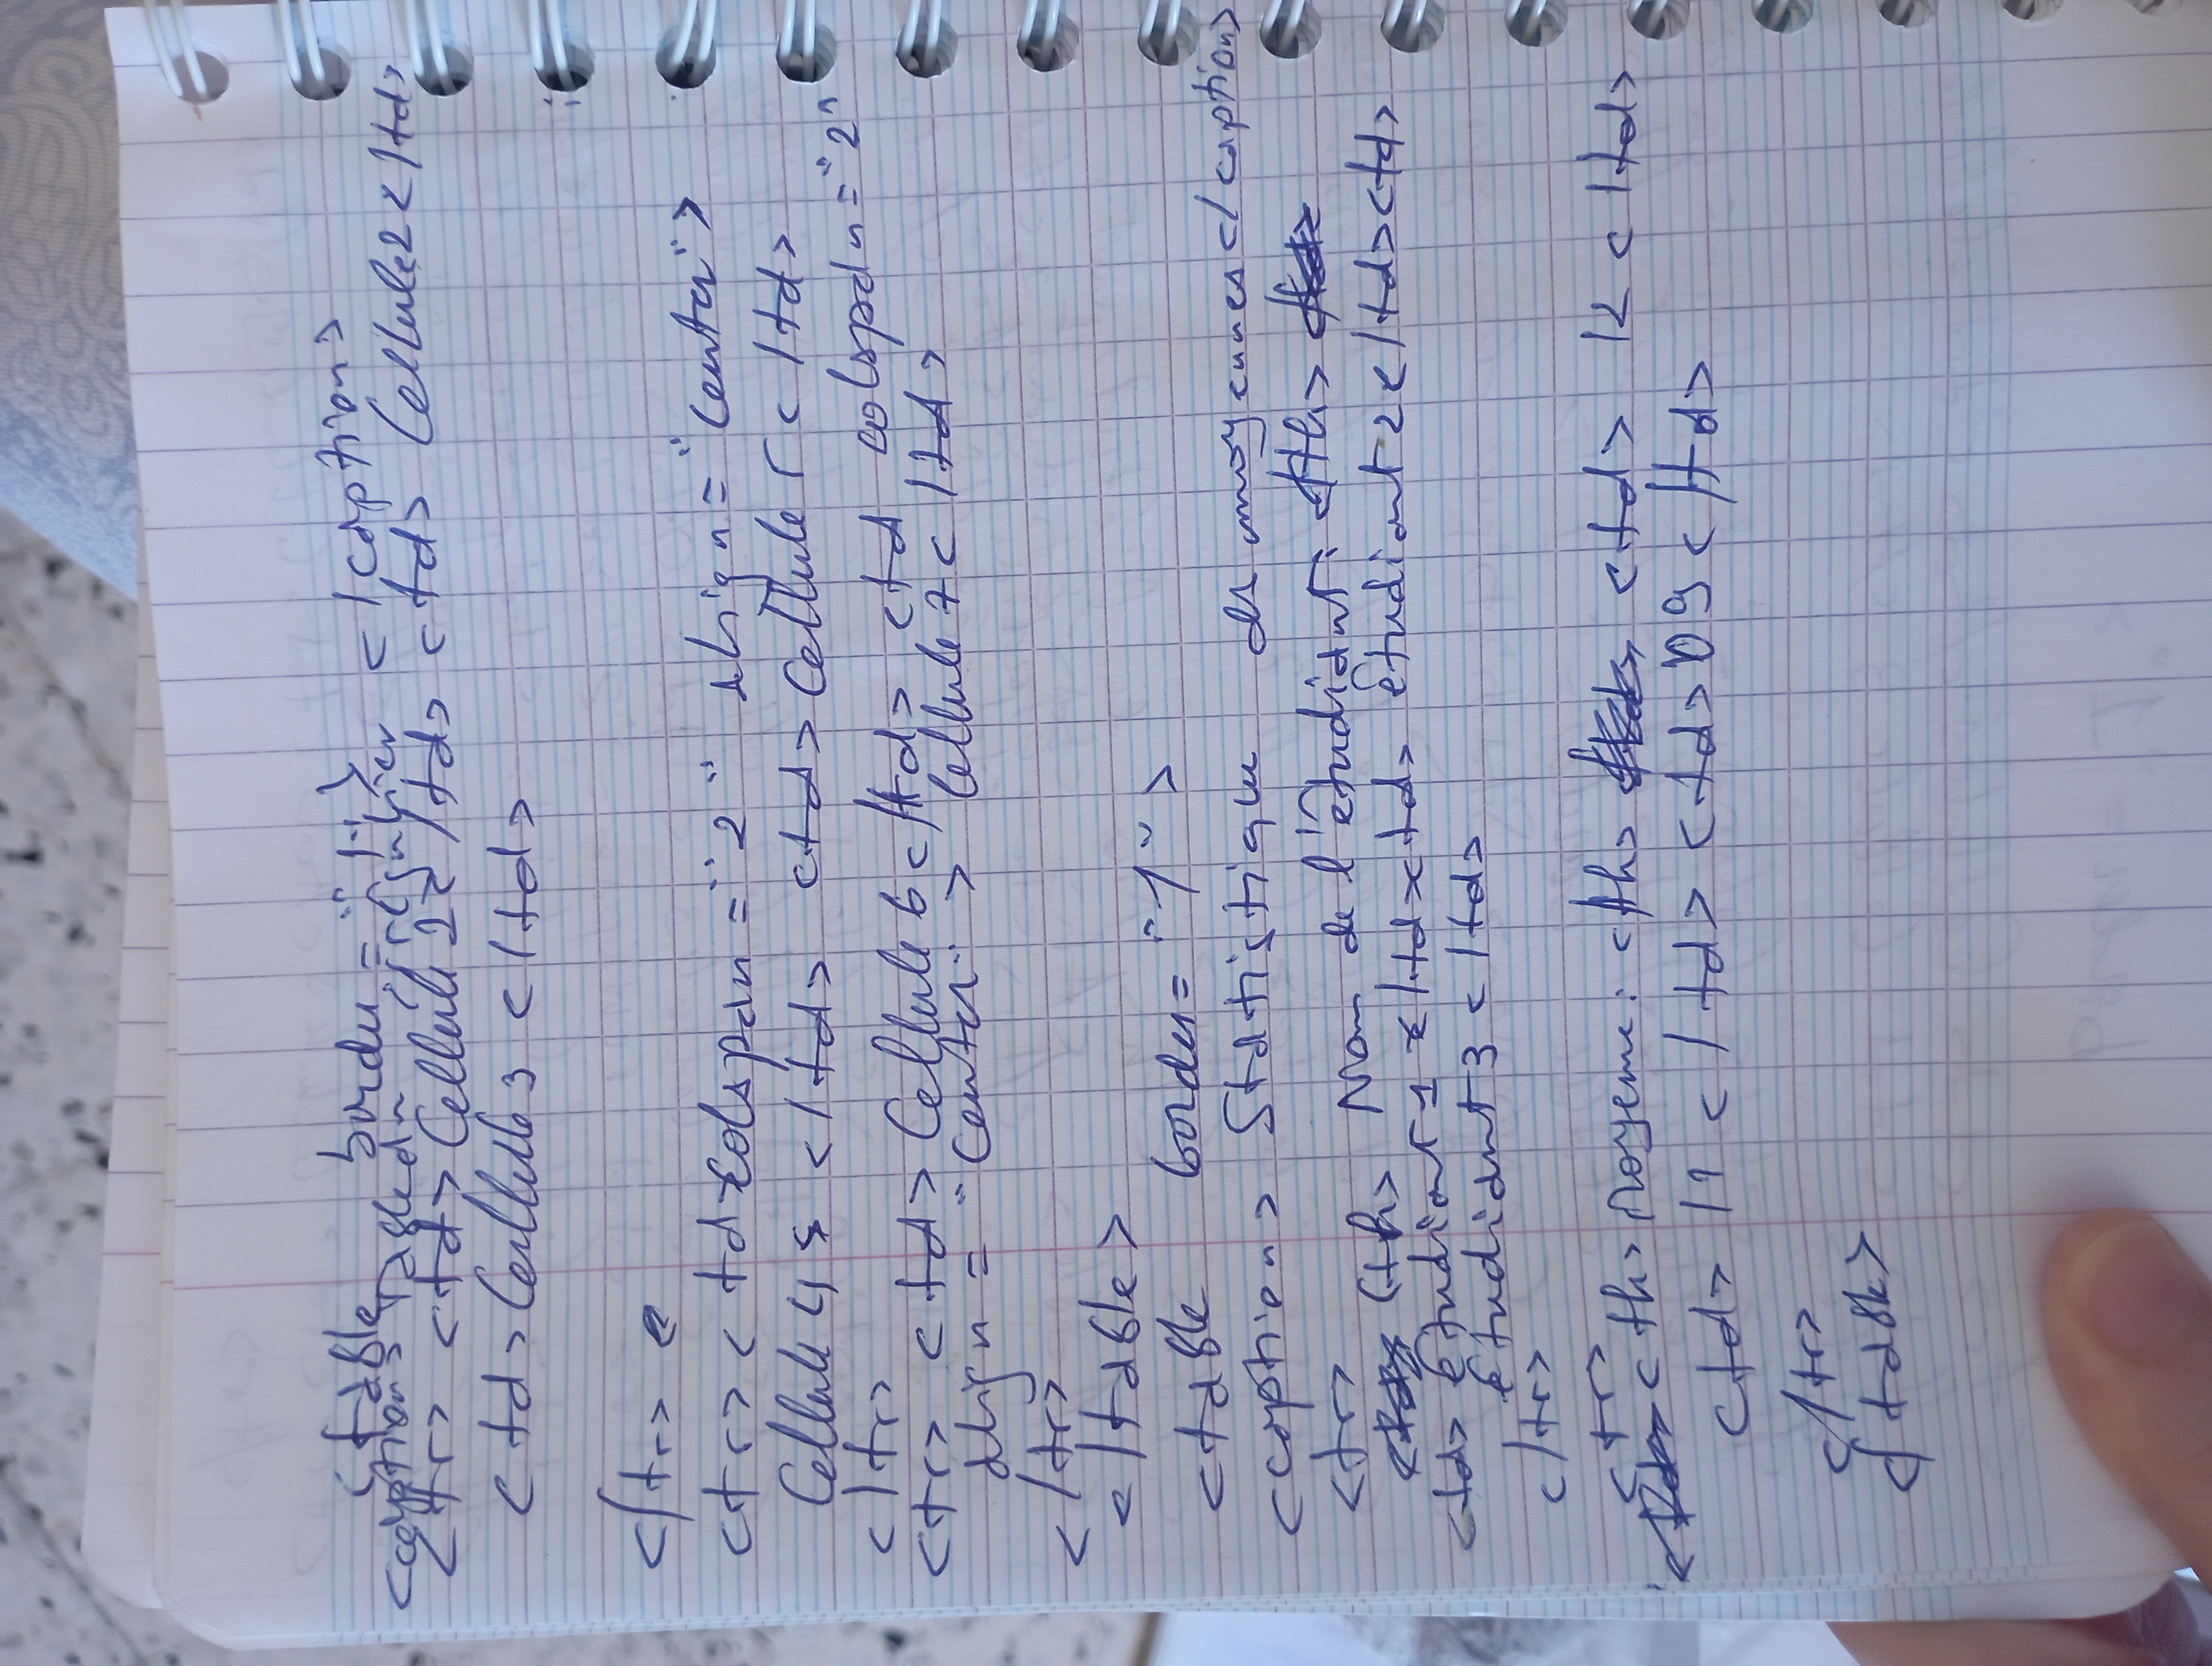 <table border="1">
<caption> Tableau irrégulier </caption>
<tr> <td> Cellule 1 </td> <td> Cellule 2 </td>
<td> Cellule 3 </td>
</tr>
<tr> <td colspan="2" align="center">
Cellule 4 </td> <td> Cellule 5 </td>
</tr>
<tr> <td> Cellule 6 </td> <td colspan="2"
align="center"> Cellule 7 </td>
</tr>
</table>
<table border="1">
<caption> Statistique des moyennes </caption>
<tr> <th> Nom de l'étudiant: </th>
<td> étudiant 1 </td> <td> étudiant 2 </td> <td>
étudiant 3 </td>
</tr>
<tr>
<th> Moyenne: </th> <td> 12 </td>
<td> 11 </td> <td> 09 </td>
</tr>
</table>